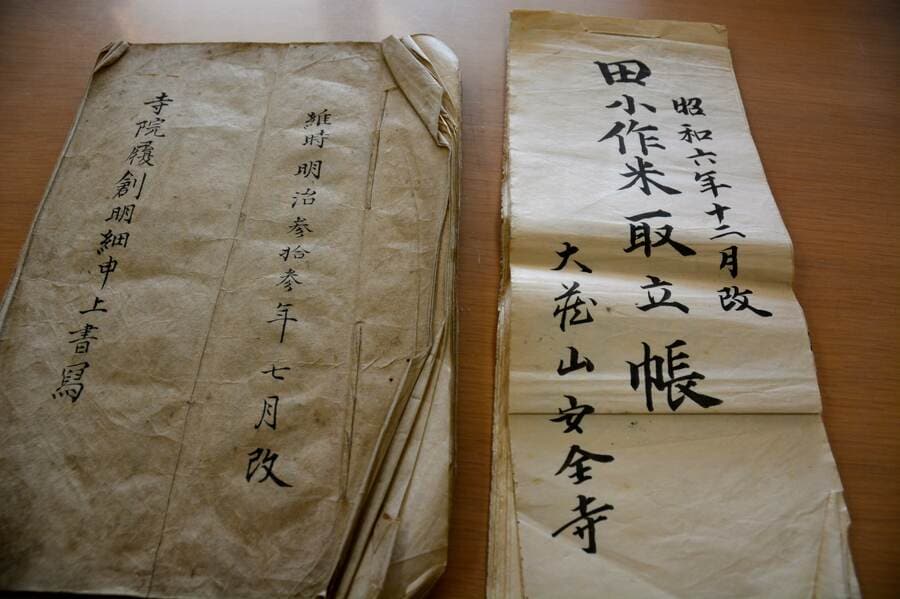 昭和六年十二月改
田小作米取立帳
大蔵山安全寺
維時明治参拾参年七月改
寺院履創明細申上書寫